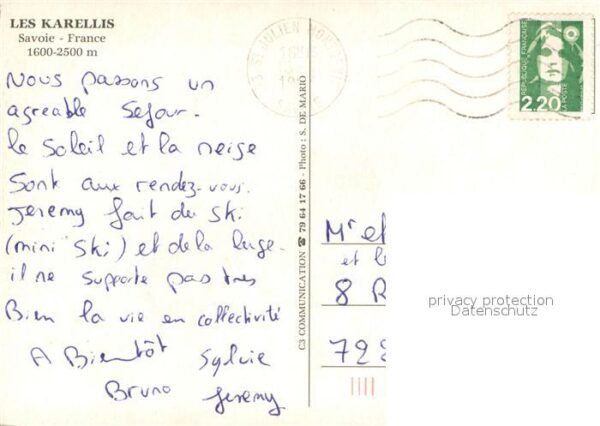 LES KARELLIS
Savoie - France
1600-2500 m
Nous passons un
agreable Sejour.
le soleil et la neige
Sont aux rendez-vous.
Jeremy fait du ski
(mini ski) et de la luge.
il ne supporte pas tres
Bien la vie en collectivité
A Bientôt Sylvie
Bruno Jeremy
C3 COMMUNICATION ☎ 79 64 17 66 - Photo : S. DE MARIO
ST JULIEN
REPUBLIQUE FRANÇAISE
2,20
LA POSTE
Mr et
et
8 R
privacy protection
Datenschutz